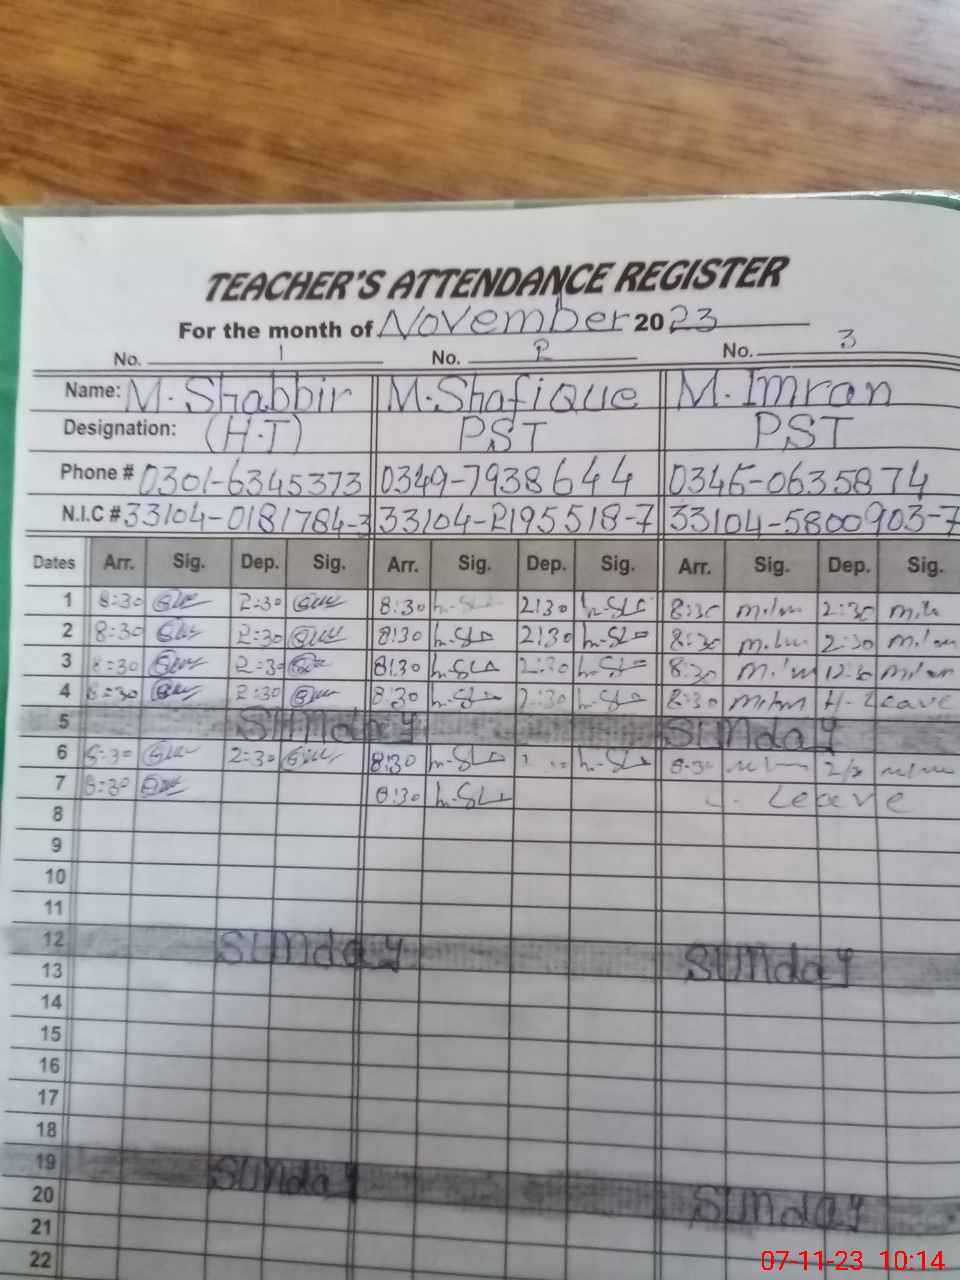 TEACHER'S ATTENDANCE REGISTER
For the month of November 2023
No. 1 No. 2 No. 3
Name: M. Shabbir M. Shafique M. Imran
Designation: (H.T) PST PST
Phone # 0301-6345373 0349-7938644 0345-0635874
N.I.C # 33104-0181784-3 33104-2195518-7 33104-5800903-7
Dates Arr. Sig. Dep. Sig. Arr. Sig. Dep. Sig. Arr. Sig. Dep. Sig.
1 8:30 2:30 8:30 2:30 8:30 2:30
2 8:30 2:30 8:30 2:30 8:30 2:30
3 8:30 2:30 8:30 2:30 8:30 12:30
4 8:30 2:30 8:30 2:30 8:30 H-Leave
5 Sunday Sunday
6 8:30 2:30 8:30 8:30
7 8:30 8:30 Leave
8
9
10
11
12 Sunday Sunday
13
14
15
16
17
18
19 Sunday Sunday
20
21
22
07-11-23 10:14